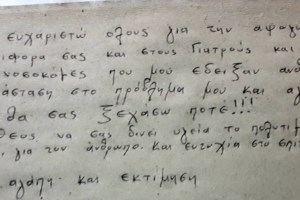 ευχαριστώ ολους για την αφοσι
ιφορα έσας και στους Γιατρούς και
νοσοκόμες που μου εδείξαν ανθ
άσταση στο πρόβλημα μου και αγ
θα σας ξεχασω ποτε!!!
Θεος να σας δινει υγεία το πολυτιμ
για τον άνθρωπο. και ευτυχία στο σπίτ
αγάπη και εκτίμηση